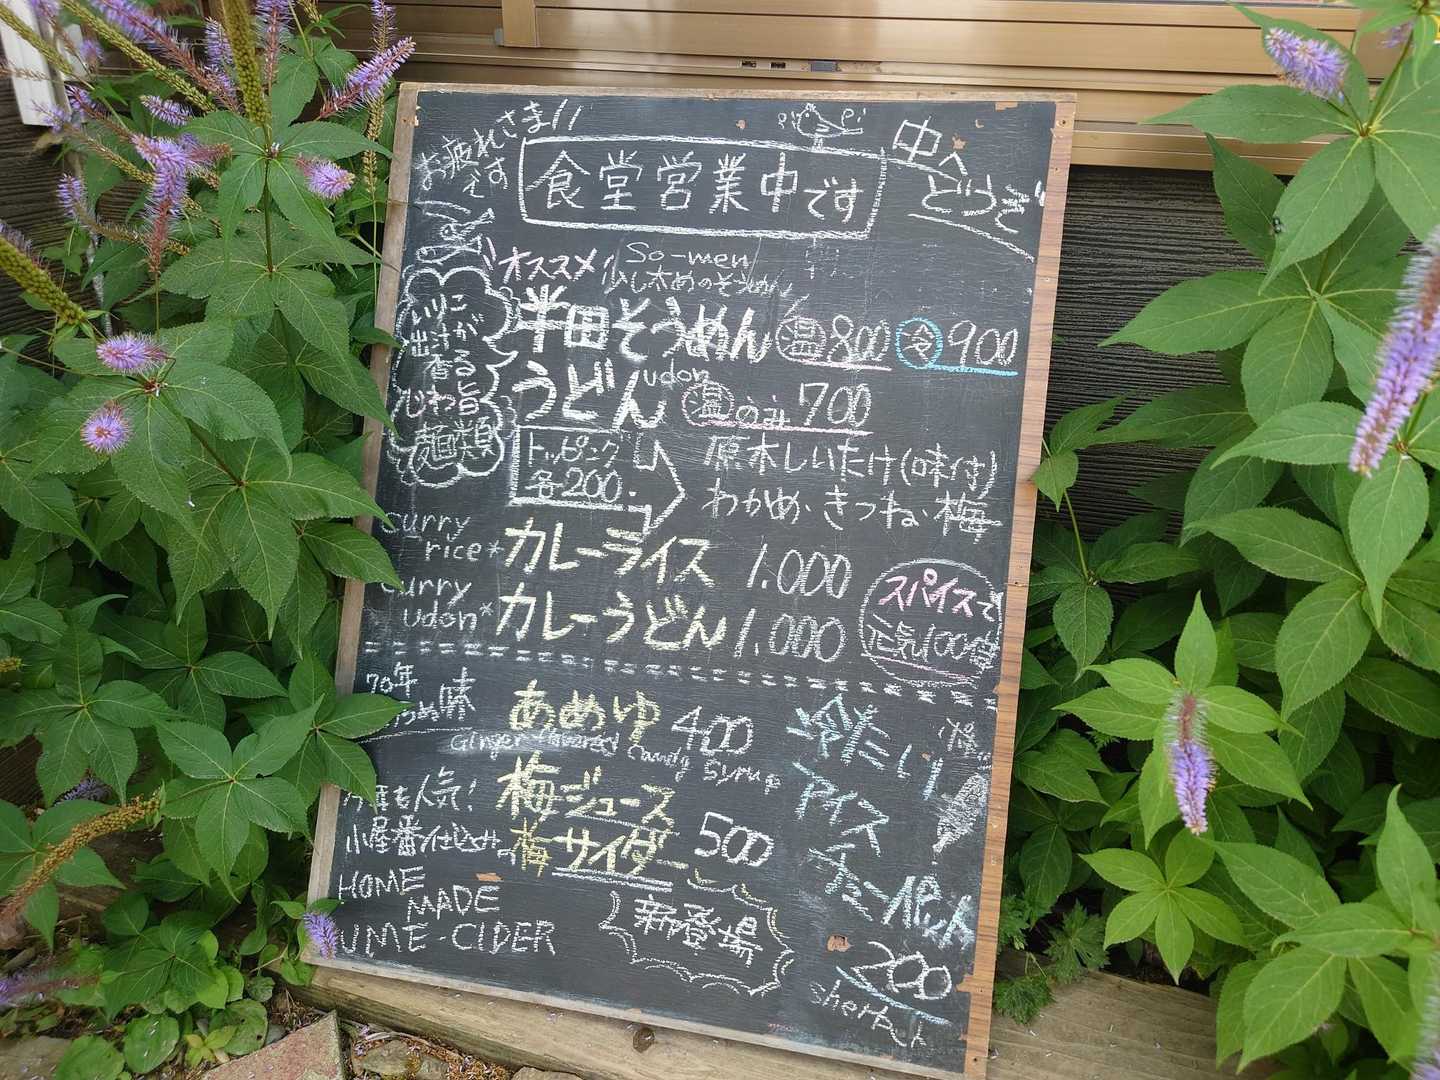 お疲れさまです
食堂営業中です
中へどうぞ
オススメ
So-men
少し太めのそうめん
半田そうめん 温 800 冷 900
いりこ
出汁が
香る
じわ旨
麺類
うどん udon 温のみ 700
トッピング
各200.
原木しいたけ(味付)
わかめ・きつね・梅
curry
rice* カレーライス 1.000
curry
udon* カレーうどん 1.000
スパイスで
元気100倍
70年
味
あめゆ 400
Ginger flavored Candy Syrup
今年も人気!
小屋番仕込みの
梅ジュース
梅サイダー 500
HOME
MADE
UME-CIDER
新登場
冷たい
アイス
200
sherbet